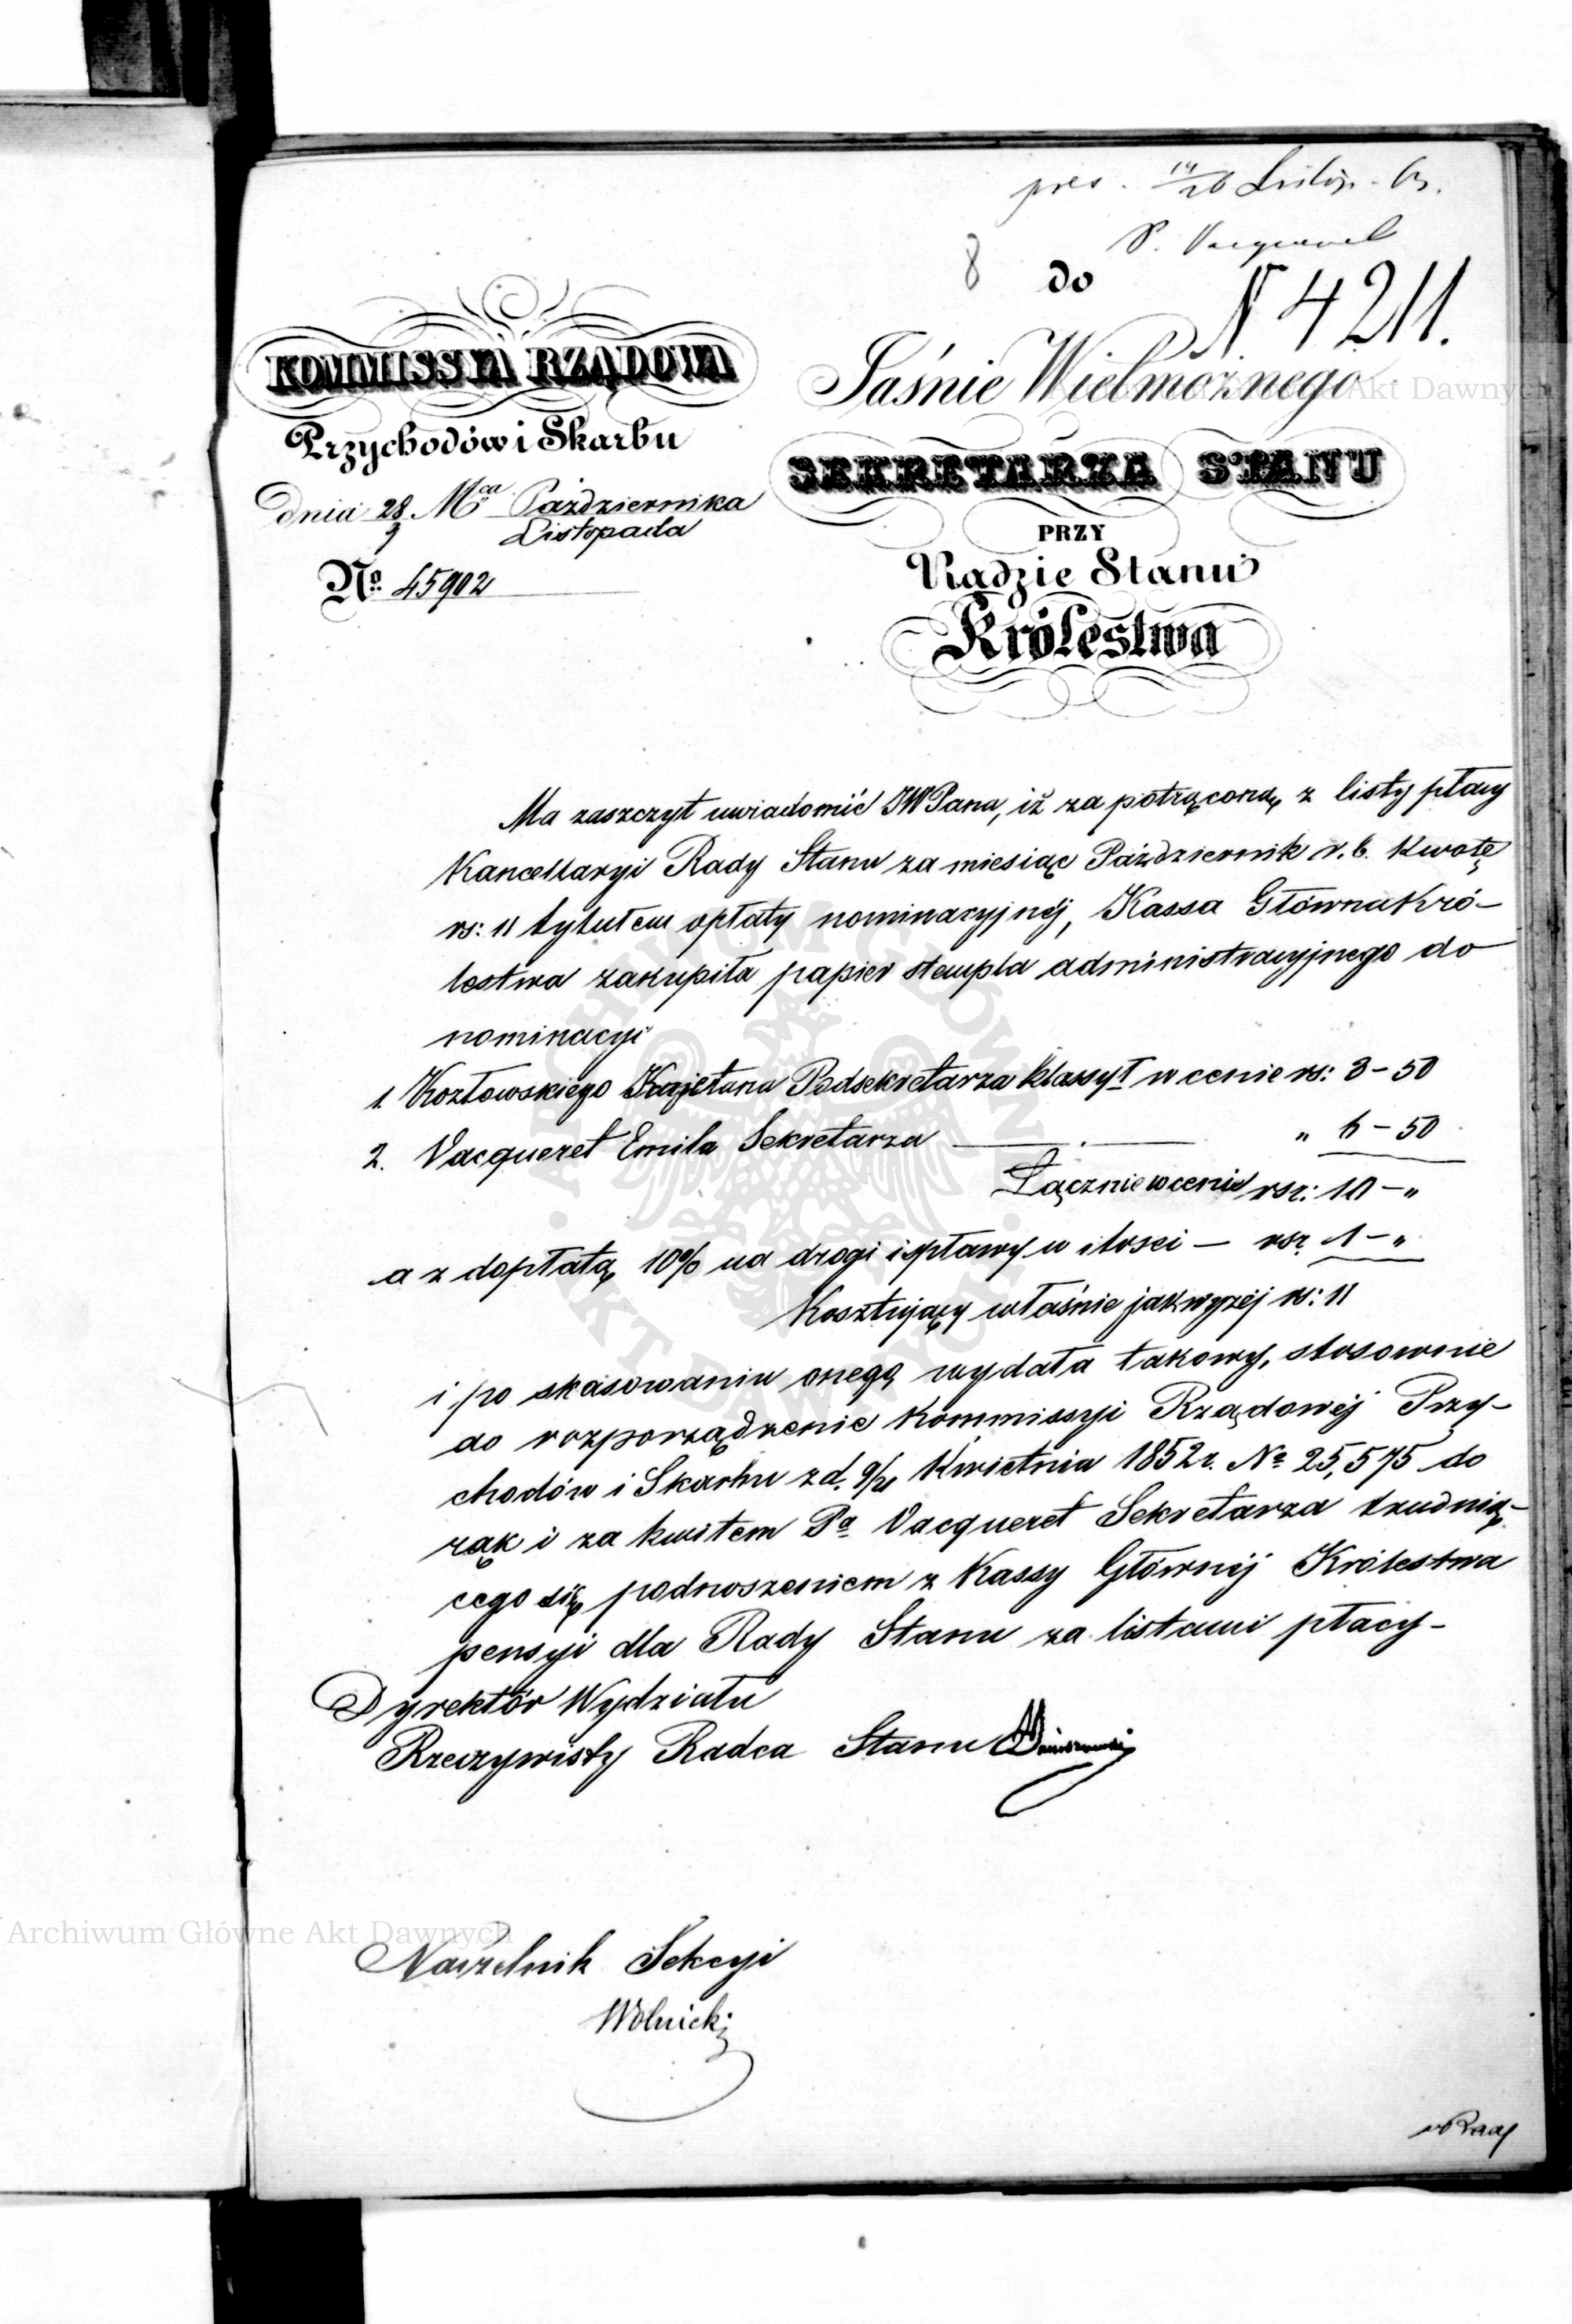 pres. 14/26 Listop. 63.
P. Vacqueret
8 do
N 4211.
KOMMISSYA RZĄDOWA
Przychodów i Skarbu
dnia 28/9 Mca Października
Listopada
No. 45902
Jaśnie Wielmożnego
SEKRETARZA STANU
PRZY
Radzie Stanu
Królestwa
Ma zaszczyt uwiadomić JWPana, iż za potrąconą z listy płacy
Kancellaryi Rady Stanu za miesiąc Październik r. b. kwotę
rs: 11 tytułem opłaty nominacyjnéj, Kassa Główna Kró-
lestwa zakupiła papier stempla administracyjnego do
nominacyi
1. Kozłowskiego Kajetana Podsekretarza klassy I w cenie rs: 3-50
2. Vacqueret Emila Sekretarza — . — „ 6-50
Łącznie w cenie rsr: 10-„
a z dopłatą 10% na drogi i spławy w ilosci — rsr. 1-„
Kosztujący właśnie jak wyżéj rs: 11
i po skasowaniu onego wydała takowy, stosownie
do rozporządzenie Kommissyi Rządowéj Przy-
chodów i Skarbu z d. 9/21 Kwietnia 1852 r. No 25,575 do
rąk i za kwitem Pa Vacqueret Sekretarza trudnią-
cego się podnoszeniem z Kassy Głównéj Królestwa
pensyi dla Rady Stanu za listami płacy-
Dyrektór Wydziału
Rzeczywisty Radca Stanu
Naczelnik Sekcyi
Wolnicki
Archiwum Główne Akt Dawnych
Akt Dawnych
ARCHIWUM GŁÓWNE AKT DAWNYCH